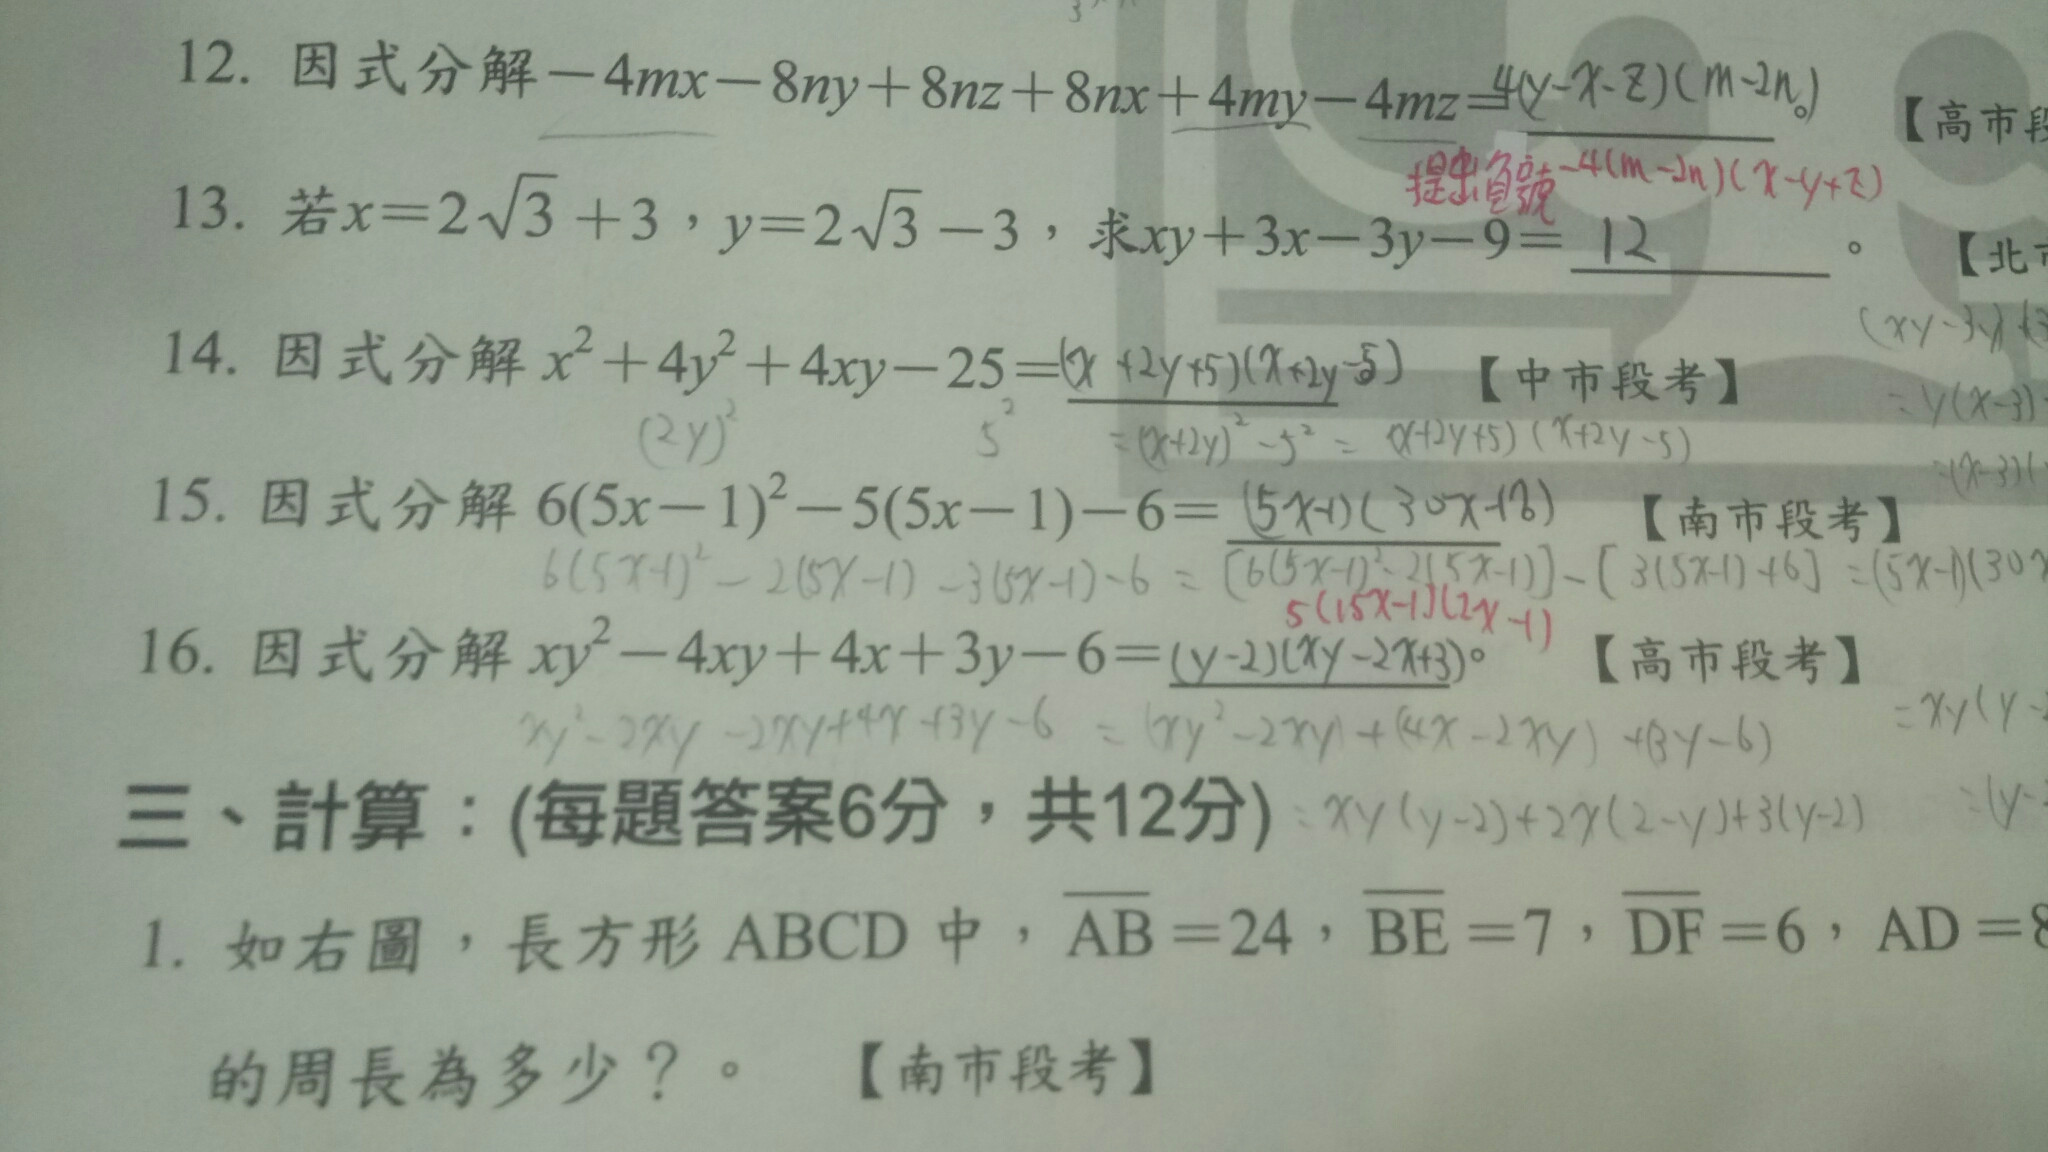 12. 因式分解−4mx−8ny+8nz+8nx+4my−4mz=4(y-x-z)(m-2n)。 【高市段
提出負號 -4(m-2n)(x-y+z)
13. 若x=2√3+3，y=2√3−3，求xy+3x−3y−9= 12 。 【北市
(xy-3y)+(3
14. 因式分解 x²+4y²+4xy−25=(x+2y+5)(x+2y-5) 【中市段考】
=y(x-3)
(2y)² 5² =(x+2y)²-5²= (x+2y+5)(x+2y-5)
=(x-3)(
15. 因式分解 6(5x−1)²−5(5x−1)−6= (5x-1)(30x+8) 【南市段考】
6(5x-1)²-2(5x-1)-3(5x-1)-6 = [6(5x-1)²-2(5x-1)]-[3(5x-1)+6] =(5x-1)(30x
5(15x-1)(2x-1)
16. 因式分解 xy²−4xy+4x+3y−6=(y-2)(xy-2x+3)。 【高市段考】
xy²-2xy-2xy+4x+3y-6 = (xy²-2xy)+(4x-2xy)+(3y-6)
=xy(y-
三、計算：(每題答案6分，共12分)
=xy(y-2)+2x(2-y)+3(y-2)
=(y-
1. 如右圖，長方形 ABCD 中，AB=24，BE=7，DF=6，AD=8
的周長為多少？。 【南市段考】